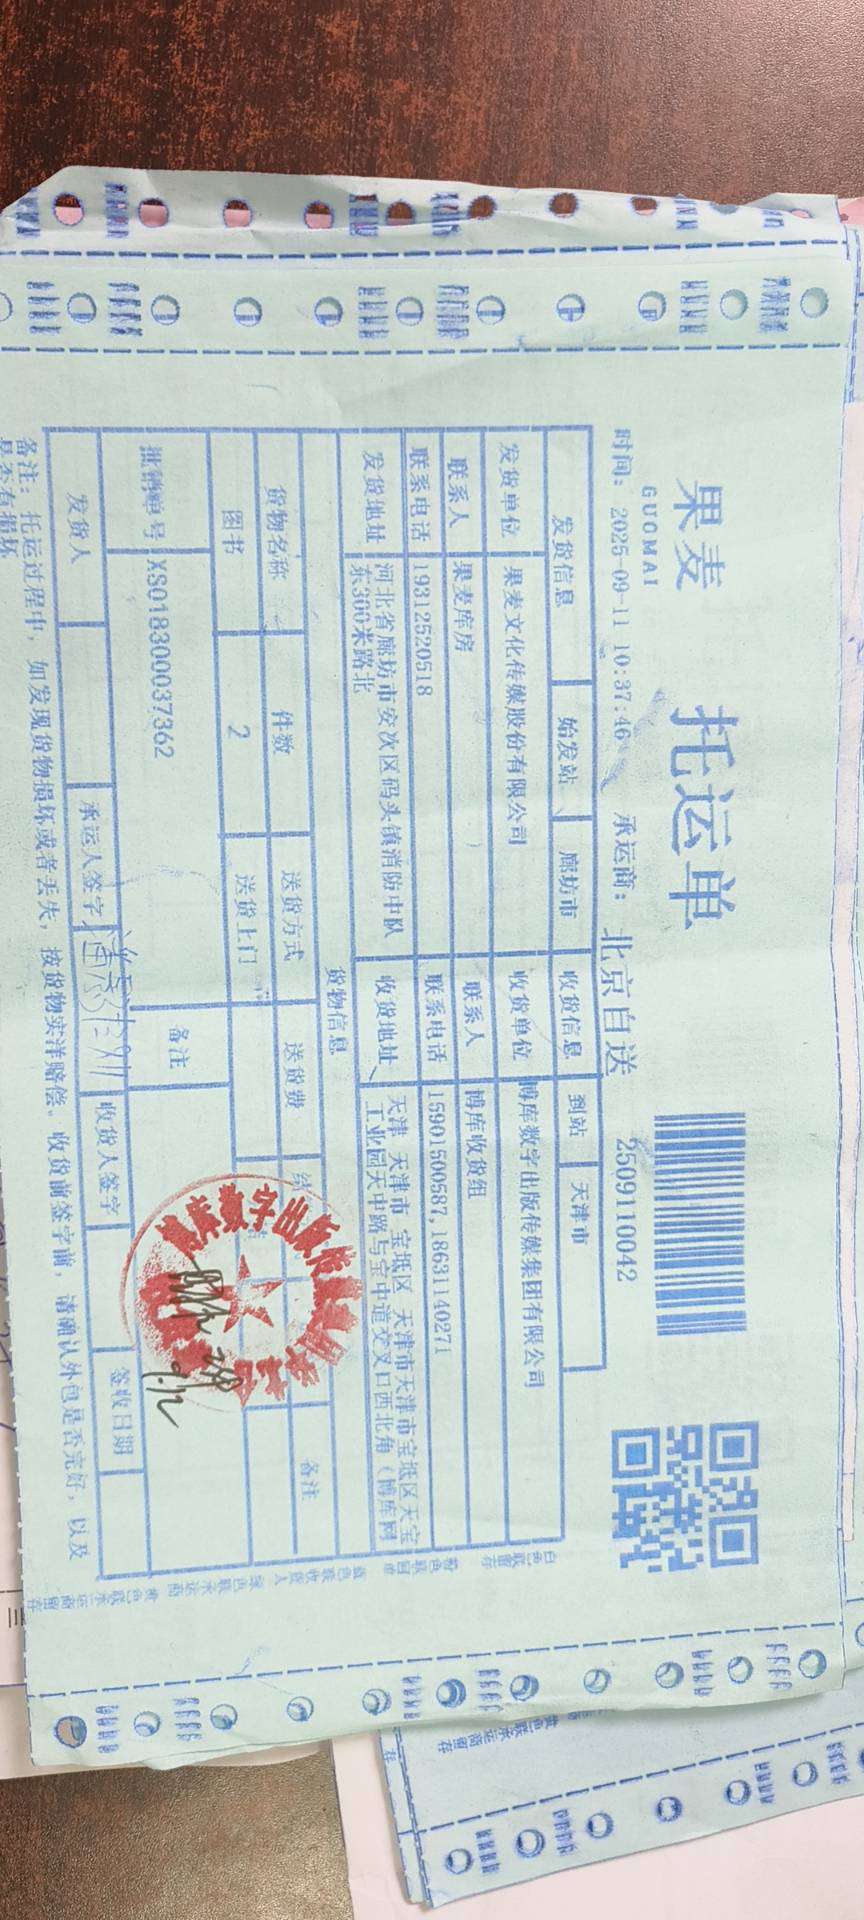 果麦 托运单
GUOMAI
时间: 2025-09-11 10:37:46 承运商: 北京自送 2509110042
发货信息 始发站 廊坊市 收货信息 到站 天津市
发货单位 果麦文化传媒股份有限公司 收货单位 博库数字出版传媒集团有限公司
联系人 果麦库房 联系人 博库收货组
联系电话 19312520518 联系电话 15901500587,18631140271
发货地址 河北省廊坊市安次区码头镇消防中队
东300米路北
收货地址 天津 天津市 宝坻区 天津市天津市宝坻区天宝
工业园天中路与宝中道交叉口西北角（博库网
货物信息
货物名称 件数 送货方式 送货费 备注
图书 2 送货上门
批销单号 XS018300037362 备注
发货人 承运人签字 收货人签字 签收日期
备注: 托运过程中, 如发现货物损坏或者丢失, 按货物实洋赔偿。收货前签字前, 请确认外包是否完好, 以及
是否有损坏
白色联留存 粉色联回单 蓝色联收货人 绿色联承运商 黄色联承运商留存
博库数字出版传媒集团有限公司
9.12